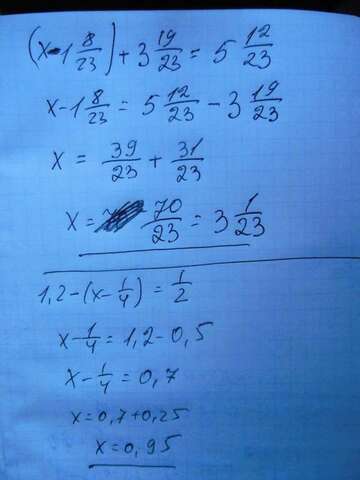 (x-1 8/23) + 3 19/23 = 5 12/23
x-1 8/23 = 5 12/23 - 3 19/23
x = 39/23 + 31/23
x= 70/23 = 3 1/23
1,2-(x-1/4) = 1/2
x-1/4 = 1,2-0,5
x-1/4 = 0,7
x=0,7+0,25
x=0,95